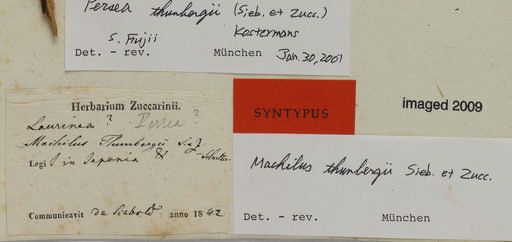 Persea thunbergii (Sieb. et Zucc.)
Kostermans
S. Fujii
Det. - rev. München Jan. 30, 2001
Herbarium Zuccarinii.
Laurinea? Persea?
Machilus Thunbergii S. & Z.
Legi in Japonia
Communicavit de Siebold anno 1842
SYNTYPUS
imaged 2009
Machilus thunbergii Sieb. et Zucc.
Det. - rev. München